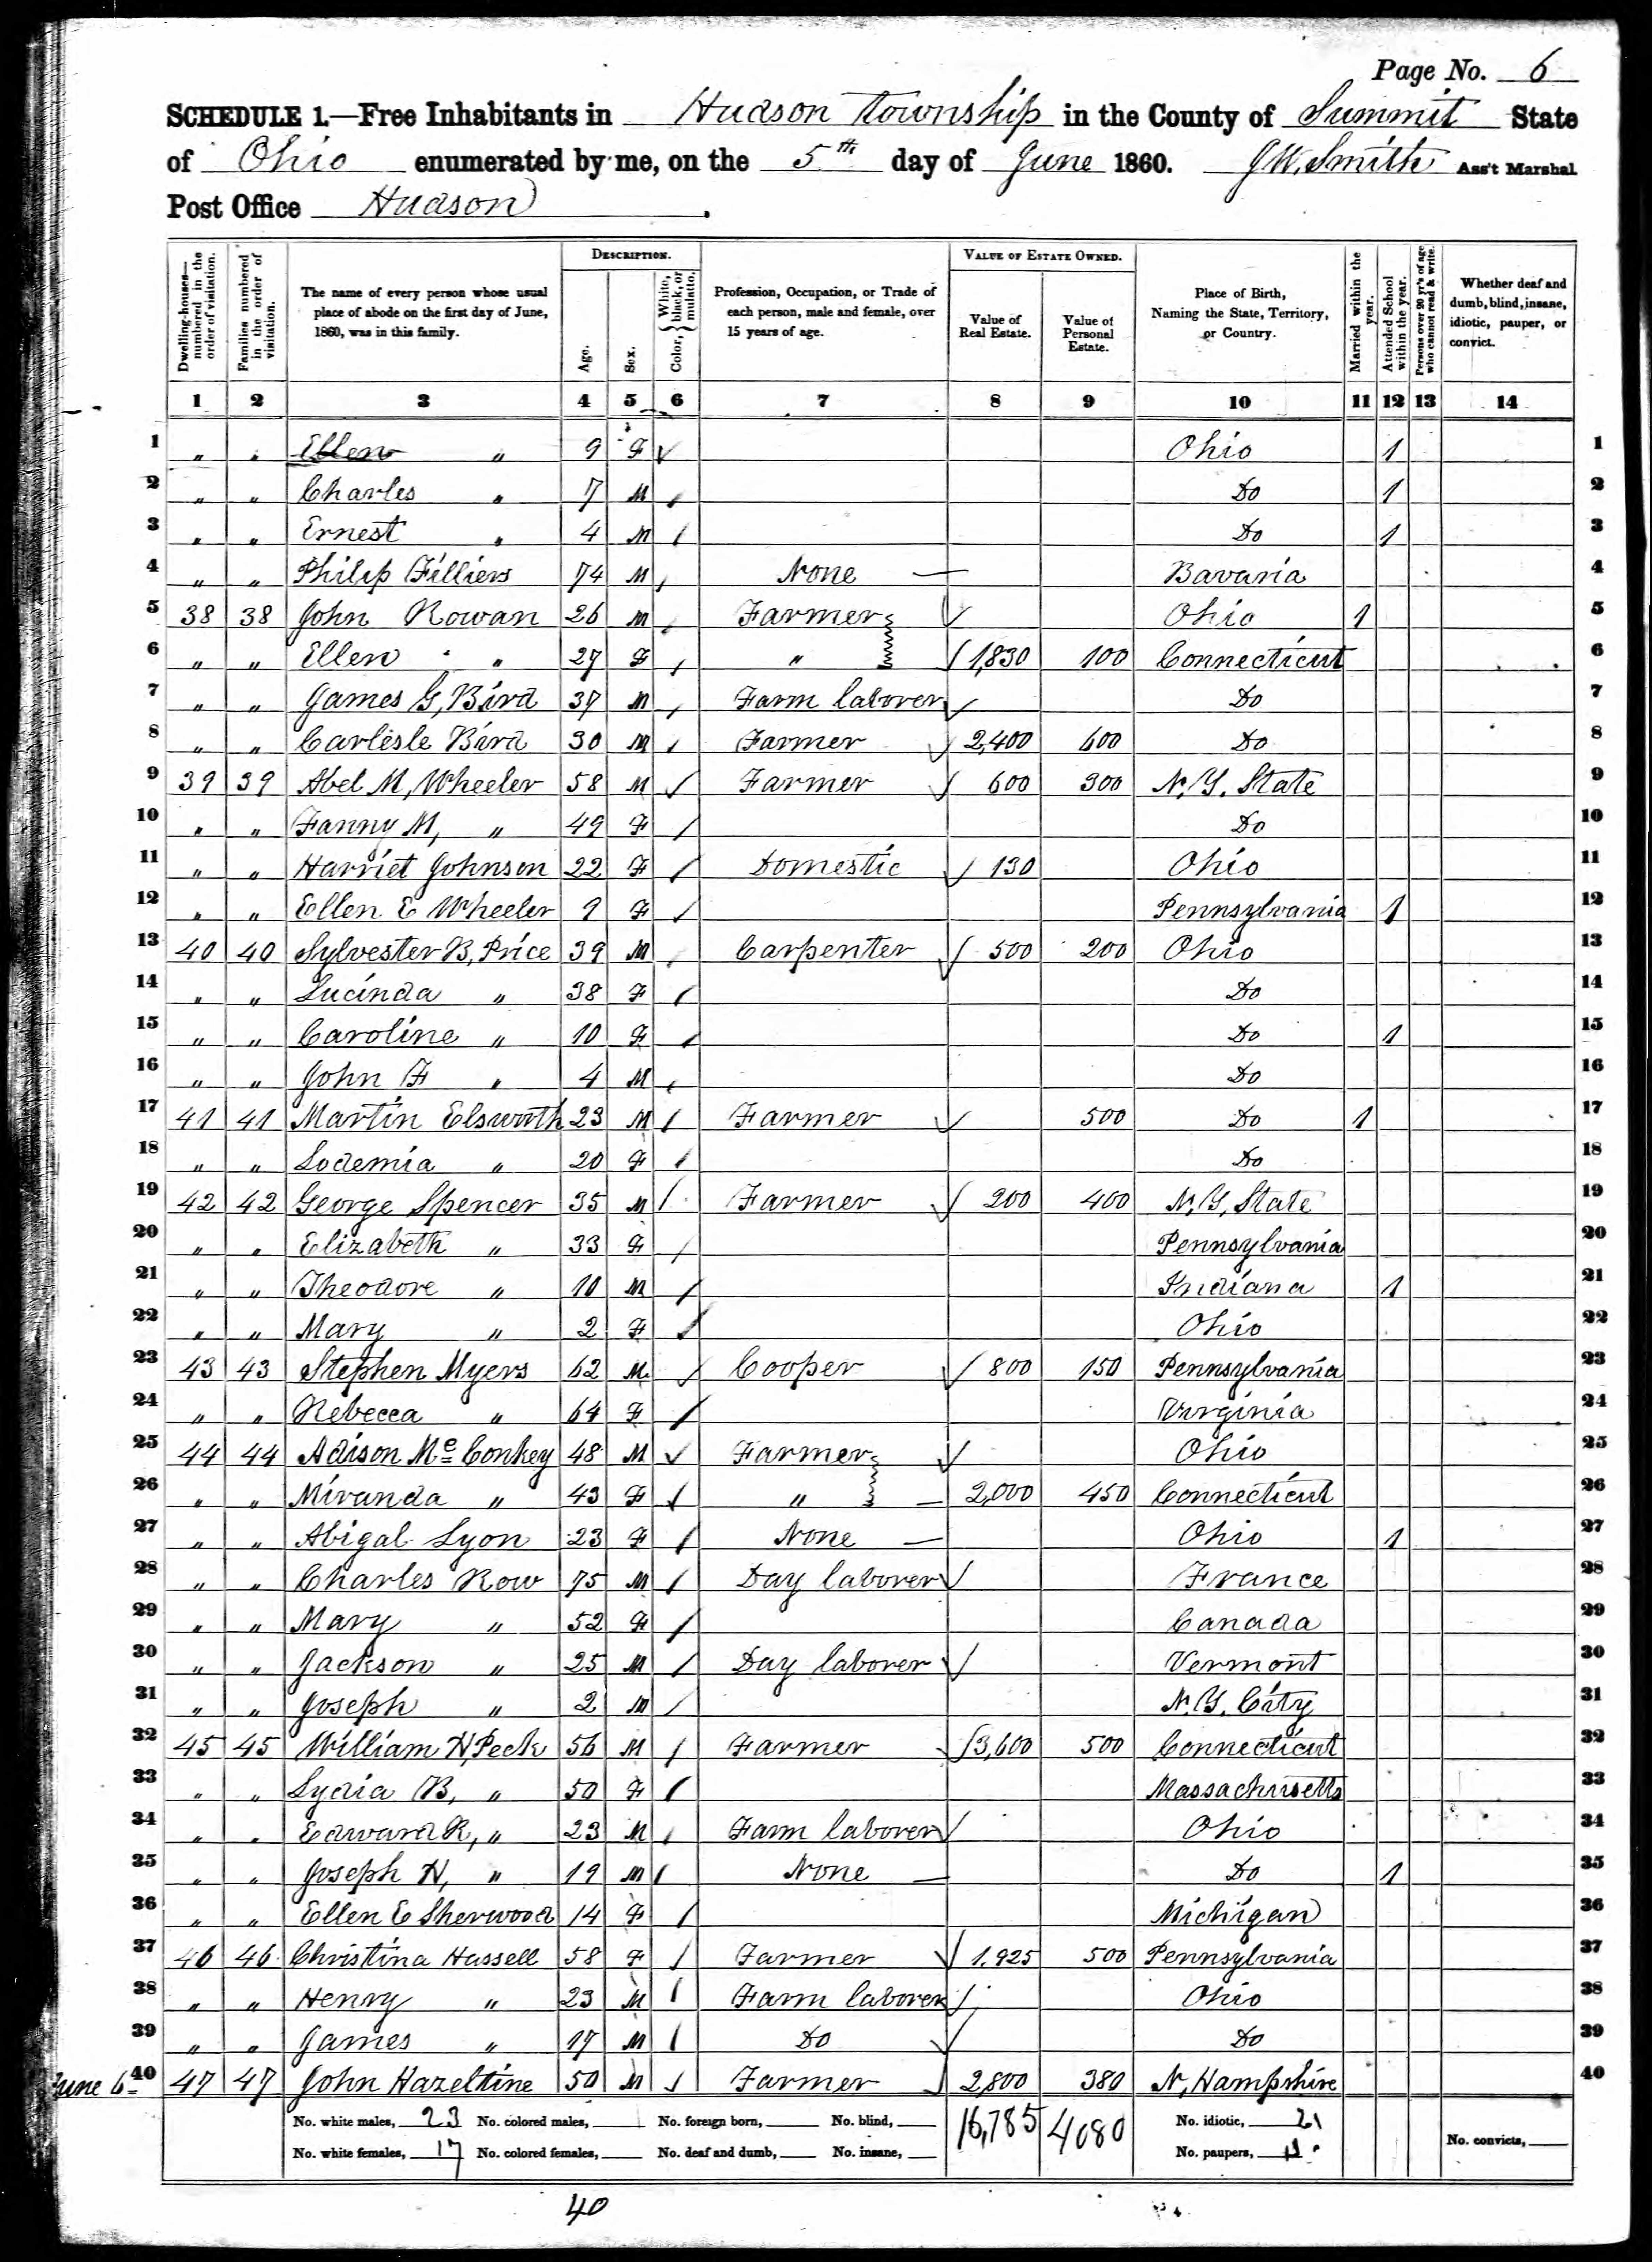 Page No. 6
SCHEDULE 1.—Free Inhabitants in Hudson Township in the County of Summit State
of Ohio enumerated by me, on the 5th day of June 1860. J W. Smith Ass't Marshal
Post Office Hudson.
DESCRIPTION. VALUE OF ESTATE OWNED.
Dwelling-houses—numbered in the order of visitation. Families numbered in the order of visitation. The name of every person whose usual place of abode on the first day of June, 1860, was in this family. Age. Sex. Color, } White, black, or mulatto. Profession, Occupation, or Trade of each person, male and female, over 15 years of age. Value of Real Estate. Value of Personal Estate. Place of Birth, Naming the State, Territory, or Country. Married within the year. Attended School within the year. Persons over 20 yr's of age who cannot read & write. Whether deaf and dumb, blind, insane, idiotic, pauper, or convict.
1 2 3 4 5 6 7 8 9 10 11 12 13 14
1 " " Ellen " 9 F Ohio 1 1
2 " " Charles " 7 M Do 1 2
3 " " Ernest " 4 M Do 1 3
4 " " Philip Filliers 74 M None — Bavaria 4
5 38 38 John Rowan 26 M Farmer Ohio 1 5
6 " " Ellen " 27 F " 1,830 100 Connecticut 6
7 " " James G, Bird 37 M Farm laborer Do 7
8 " " Carlisle Bird 30 M Farmer 2,400 600 Do 8
9 39 39 Abel M, Wheeler 58 M Farmer 600 300 N. Y. State 9
10 " " Fanny M, " 49 F Do 10
11 " " Harriet Johnson 22 F Domestic 130 Ohio 11
12 " " Ellen E Wheeler 9 F Pennsylvania 1 12
13 40 40 Sylvester B, Price 39 M Carpenter 500 200 Ohio 13
14 " " Lucinda " 38 F Do 14
15 " " Caroline " 10 F Do 1 15
16 " " John F " 4 M Do 16
17 41 41 Martin Elsworth 23 M Farmer 500 Do 1 17
18 " " Lodemia " 20 F Do 18
19 42 42 George Spencer 35 M Farmer 200 400 N. Y, State 19
20 " " Elizabeth " 33 F Pennsylvania 20
21 " " Theodore " 10 M Indiana 1 21
22 " " Mary " 2 F Ohio 22
23 43 43 Stephen Myers 62 M Cooper 800 150 Pennsylvania 23
24 " " Rebecca " 64 F Virginia 24
25 44 44 Adison Mc Conkey 48 M Farmer Ohio 25
26 " " Miranda " 43 F " — 2,000 450 Connecticut 26
27 " " Abigal Lyon 23 F None — Ohio 1 27
28 " " Charles Row 75 M Day laborer France 28
29 " " Mary " 52 F Canada 29
30 " " Jackson " 25 M Day laborer Vermont 30
31 " " Joseph " 2 M N. Y. City 31
32 45 45 William H, Peck 56 M Farmer 3,600 500 Connecticut 32
33 " " Lydia B, " 50 F Massachusetts 33
34 " " Edward R, " 23 M Farm laborer Ohio 34
35 " " Joseph H, " 19 M None — Do 1 35
36 " " Ellen E Sherwood 14 F Michigan 36
37 46 46 Christina Hassell 58 F Farmer 1,925 500 Pennsylvania 37
38 " " Henry " 23 M Farm laborer Ohio 38
39 " " James " 17 M Do Do 39
June 6 40 47 47 John Hazeltine 50 M Farmer 2,800 380 N, Hampshire 40
No. white males, 23 No. colored males, No. foreign born, No. blind, 16,785 4080 No. idiotic, 21
No. white females, 17 No. colored females, No. deaf and dumb, No. insane, No. paupers, No. convicts,
40